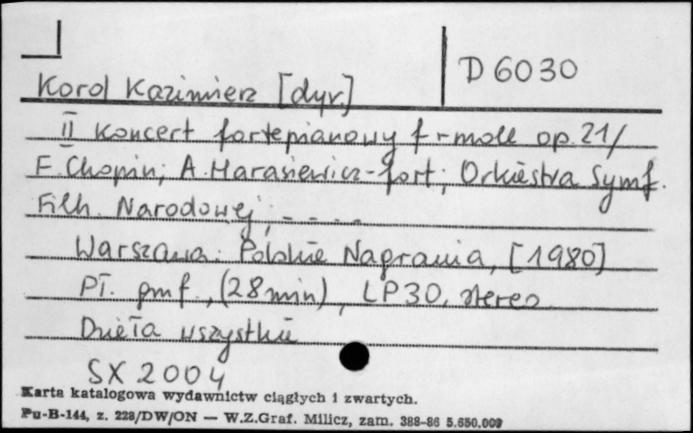 D 6030
Korol Kazimierz [dyr]
II Koncert fortepianowy f-moll op. 21/
F. Chopin; A. Harasiewicz-fort; Orkiestra Symf.
Filh. Narodowej; - - - -
Warszawa: Polskie Nagrania, [1980]
Pł. gmf., (28 min), LP30, stereo
Dzieła wszystkie
SX 2004
Karta katalogowa wydawnictw ciągłych i zwartych.
Pu-B-144, z. 228/DW/ON — W.Z.Graf. Milicz, zam. 388-86 5.650.000